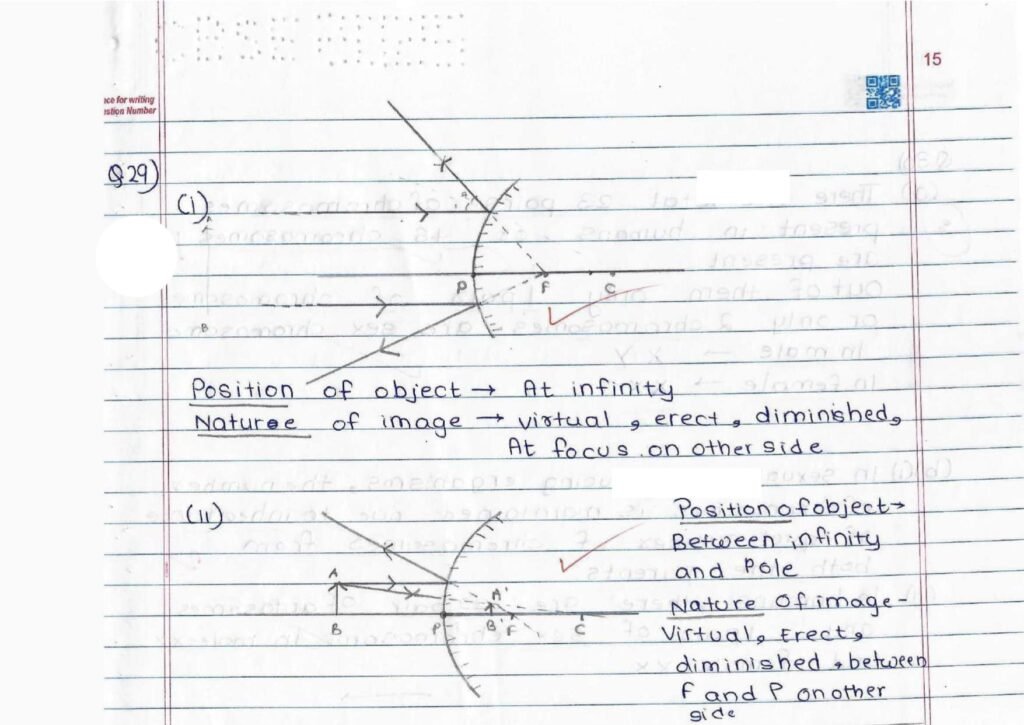 15
ace for writing
estion Number
Q29)
(i)
P F C
B
Position of object → At infinity
Nature of image → virtual, erect, diminished,
At focus on other side
(ii)
Position of object →
Between infinity
and Pole
A A'
B P B' F C
Nature of image -
Virtual, Erect,
diminished, between
F and P on other
side